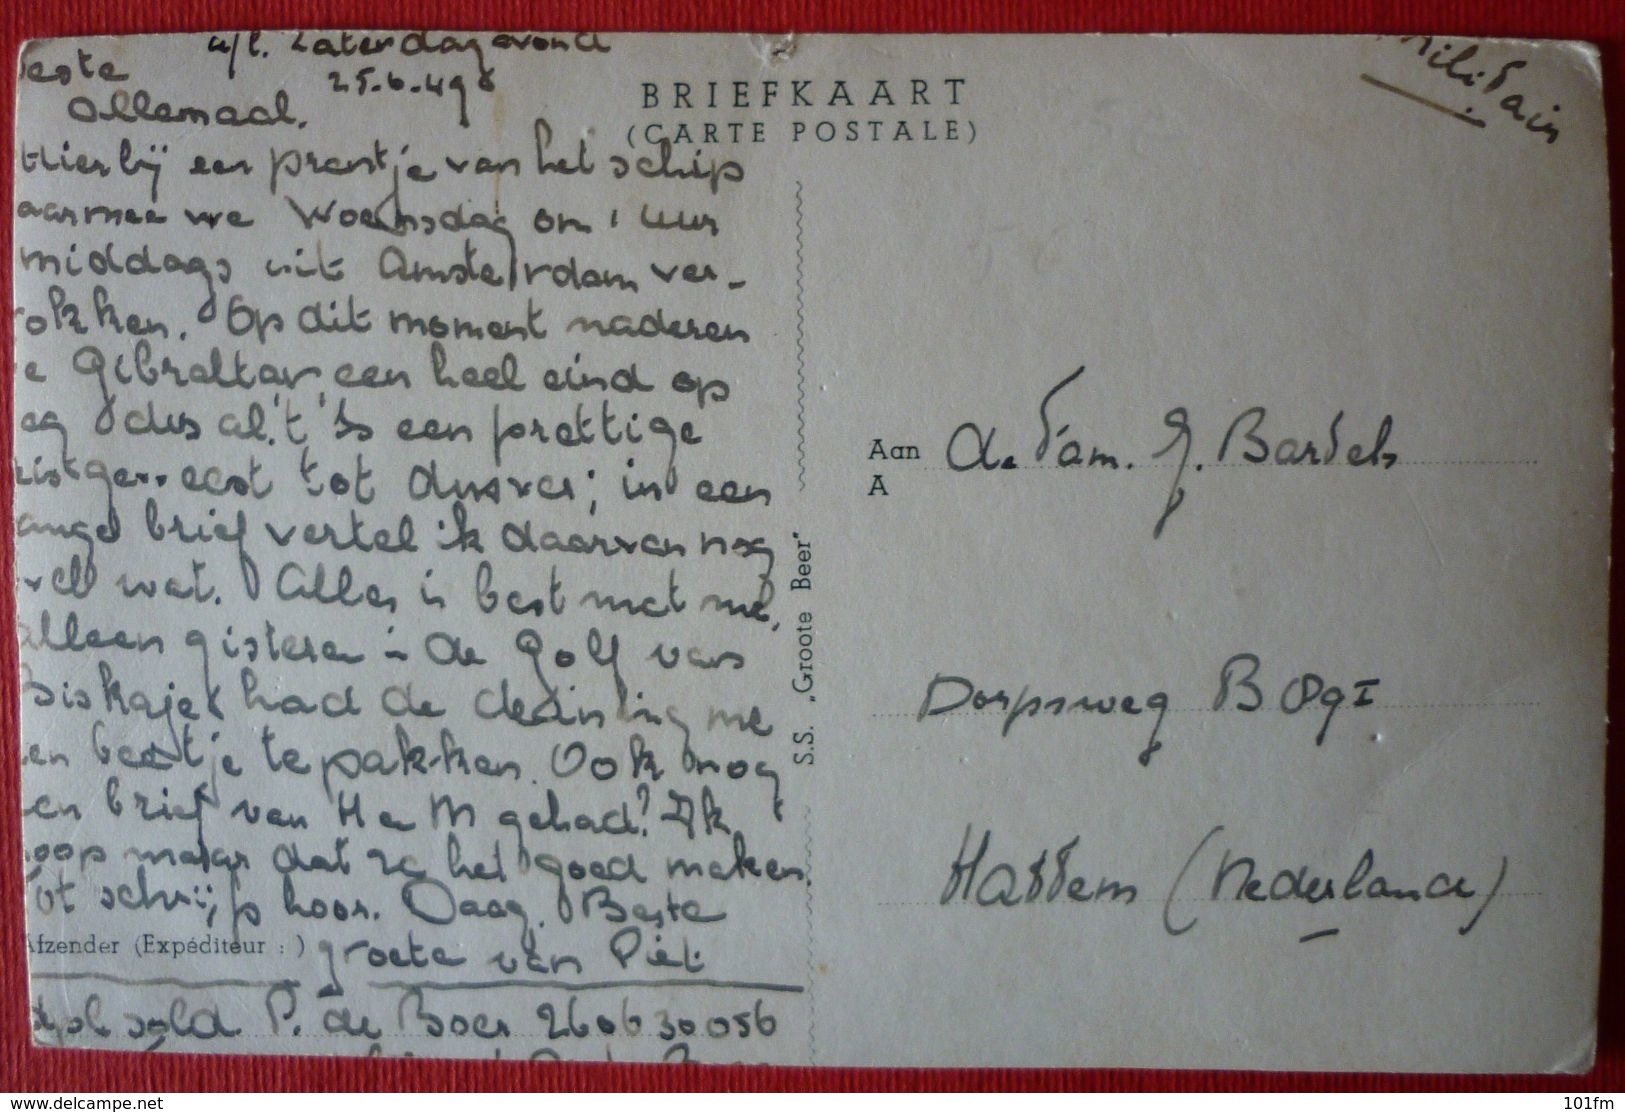 a/b. Zaterdagavond
25.6.49
este
Allemaal.
Hierbij een prentje van het schip
aarmee we Woensdag om 1 uur
middags uit Amsterdam ver-
rokken. Op dit moment naderen
e Gibraltar een heel eind op
eg dus al. 't Is een prettige
reest tot dusver; in een
ange brief vertel ik daarvan nog
wel wat. Alles is best met me,
alleen gisteren in de Golf van
Biskaje had de deining me
en beetje te pakken. Ook nog
en brief van H en M gehad? Ik
hoop maar dat ze het goed maken.
Tot schrijfs hoor. Daag. Beste
groete van Piet
Afzender (Expéditeur : )
sold P. de Boer 260630056
BRIEFKAART
(CARTE POSTALE)
Militair
S.S. „Groote Beer"
Aan de Fam. J. Bartels
A
Dorpsweg B 89 I
Hattem (Nederland)
www.delcampe.net
101fm